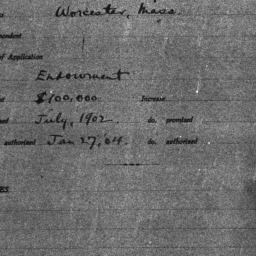 Worcester, Mass.
of Application
Endowment
$100,000. Increase
July, 1902. do. promised
authorized Jan 27, 04. do. authorized